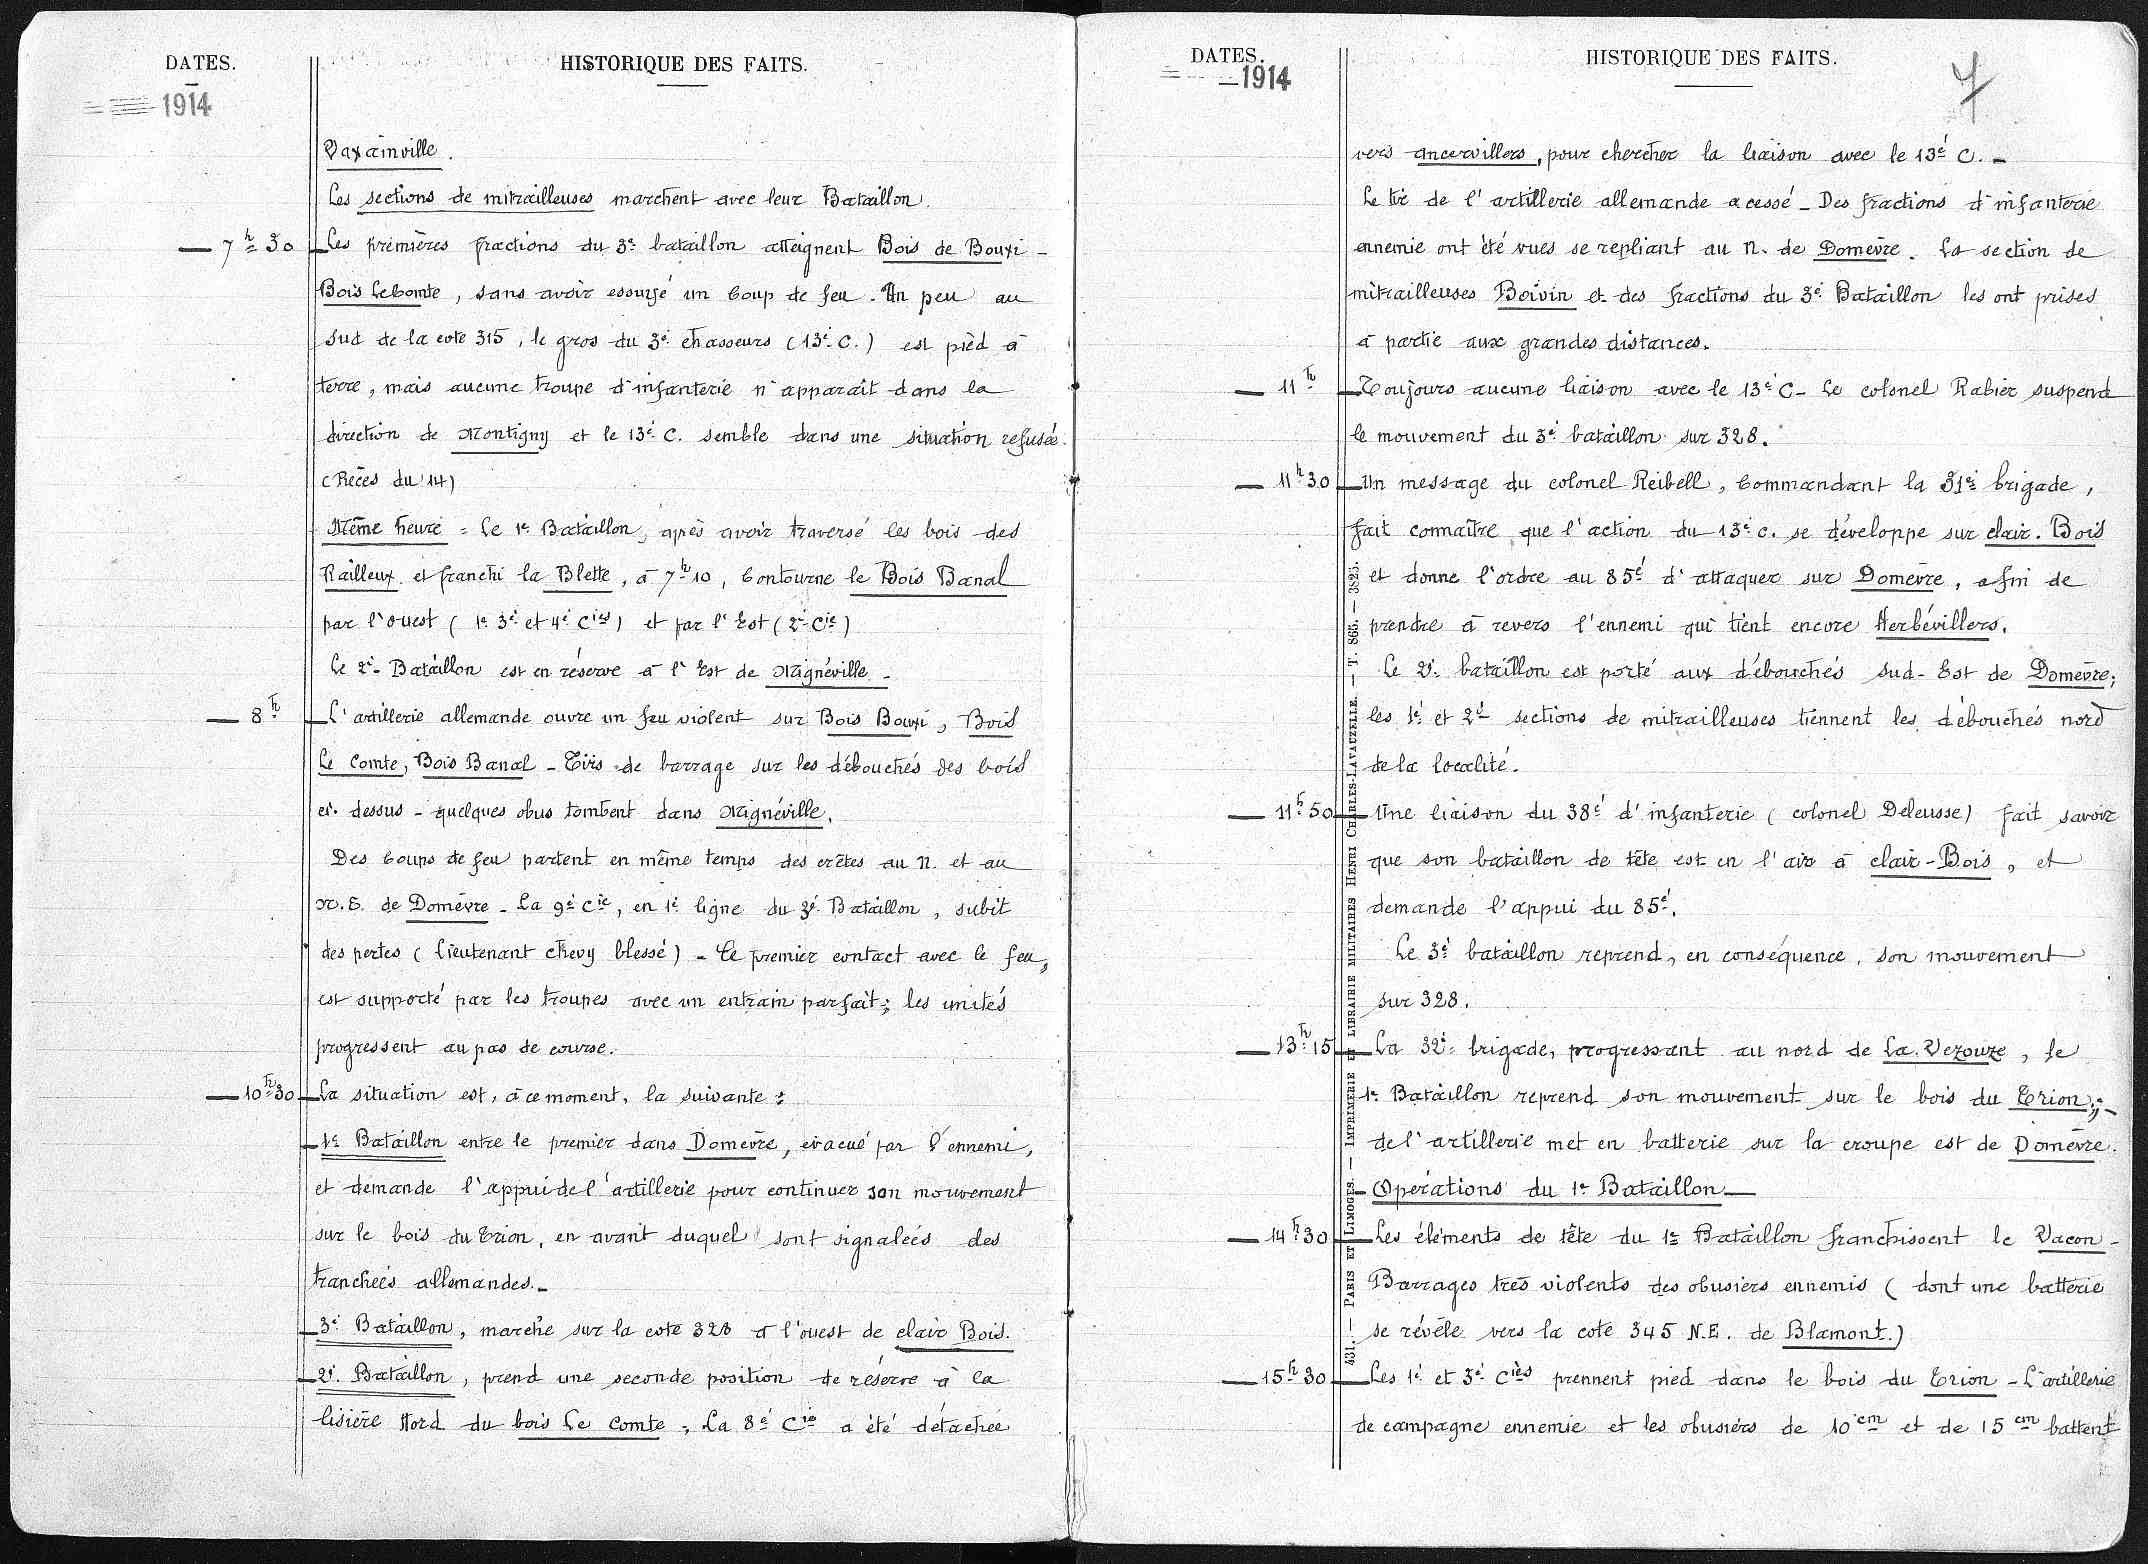 DATES.
HISTORIQUE DES FAITS.
1914
Vaxainville.
Les sections de mitrailleuses marchent avec leur Bataillon.
7h30 Les premières fractions du 3e bataillon atteignent Bois de Bouxi -
Bois LeComte, sans avoir essuyé un coup de feu. Un peu au
sud de la cote 315, le gros du 3e chasseurs (13e C.) est pied à
terre, mais aucune troupe d'infanterie n'apparaît dans la
direction de Montigny et le 13e C. semble dans une situation refusée.
(Récés du 14)
Même heure = Le 1er Bataillon, après avoir traversé les bois des
Railleux et franchi la Blette, à 7h10, contourne le Bois Banal
par l'ouest (1e 3e et 4e Cies) et par l'Est (2e Cie)
Le 2e Bataillon est en réserve à l'Est de Mignéville -
8h L'artillerie allemande ouvre un feu violent sur Bois Bouxi, Bois
Le Comte, Bois Banal - Tirs de barrage sur les débouchés des bois
ci-dessus - quelques obus tombent dans Mignéville.
Des coups de feu partent en même temps des crêtes au N. et au
N.E. de Domèvre - La 9e Cie, en 1e ligne du 3e Bataillon, subit
des pertes (lieutenant Chevy blessé) - Ce premier contact avec le feu,
est supporté par les troupes avec un entrain parfait; les unités
progressent au pas de course.
10h30 La situation est, à ce moment, la suivante :
1er Bataillon entre le premier dans Domèvre, évacué par l'ennemi,
et demande l'appui de l'artillerie pour continuer son mouvement
sur le bois du Trion, en avant duquel sont signalées des
tranchées allemandes. -
3e Bataillon, marche sur la cote 328 à l'ouest de clair Bois.
2e. Bataillon, prend une seconde position de réserve à la
lisière Nord du bois Le Comte ; La 8e Cie a été détachée
DATES.
HISTORIQUE DES FAITS.
1914
7
vers Ancervillers, pour chercher la liaison avec le 13e C. -
Le tir de l'artillerie allemande a cessé - Des fractions d'infanterie
ennemie ont été vues se repliant au N. de Domèvre. La section de
mitrailleuses Boivin et des fractions du 3e Bataillon les ont prises
à partie aux grandes distances.
11h Toujours aucune liaison avec le 13e C - Le colonel Rabier suspend
le mouvement du 3e bataillon sur 328.
11h30 Un message du colonel Reibell, Commandant la 31e brigade,
fait connaître que l'action du 13e C. se développe sur clair. Bois
et donne l'ordre au 85e d'attaquer sur Domèvre, afin de
prendre à revers l'ennemi qui tient encore Herbévillers.
Le 2e bataillon est porté aux débouchés sud-Est de Domèvre;
les 1e et 2e sections de mitrailleuses tiennent les débouchés nord
de la localité.
11h50 Une liaison du 38e d'infanterie (colonel Deleusse) fait savoir
que son bataillon de tête est en l'air à clair-Bois, et
demande l'appui du 85e.
Le 3e bataillon reprend, en conséquence, son mouvement
sur 328.
13h15 La 32e brigade, progressant au nord de La Vezouze, le
1er Bataillon reprend son mouvement sur le bois du Trion; -
de l'artillerie met en batterie sur la croupe est de Domèvre.
Opérations du 1er Bataillon
14h30 Les éléments de tête du 1er Bataillon franchissent le Vacon -
Barrages très violents des obusiers ennemis (dont une batterie
se révèle vers la cote 345 N.E. de Blamont.)
15h30 Les 1e et 3e Cies prennent pied dans le bois du Trion - L'artillerie
de campagne ennemie et les obusiers de 10 cm et de 15 cm battent
431. — PARIS ET LIMOGES. — IMPRIMERIE ET LIBRAIRIE MILITAIRES HENRI CHARLES-LAVAUZELLE. — T. 865. — 3825.